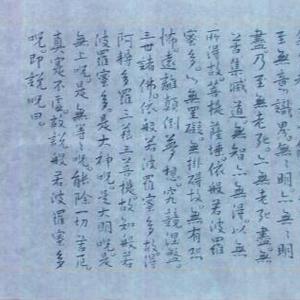 至無意識界無〻明亦無〻明
盡乃至無老死亦無老死盡無
苦集滅道無智亦無得以無
所得故菩提薩埵依般若波羅
蜜多故心無罣礙無罣礙故無有恐
怖遠離顛倒夢想究竟涅槃
三世諸佛依般若波羅蜜多故得
阿耨多羅三藐三菩提故知般若
波羅蜜多是大神呪是大明呪是
無上呪是無等〻呪能除一切苦厄
真實不虛故說般若波羅蜜多
呪即說呪曰